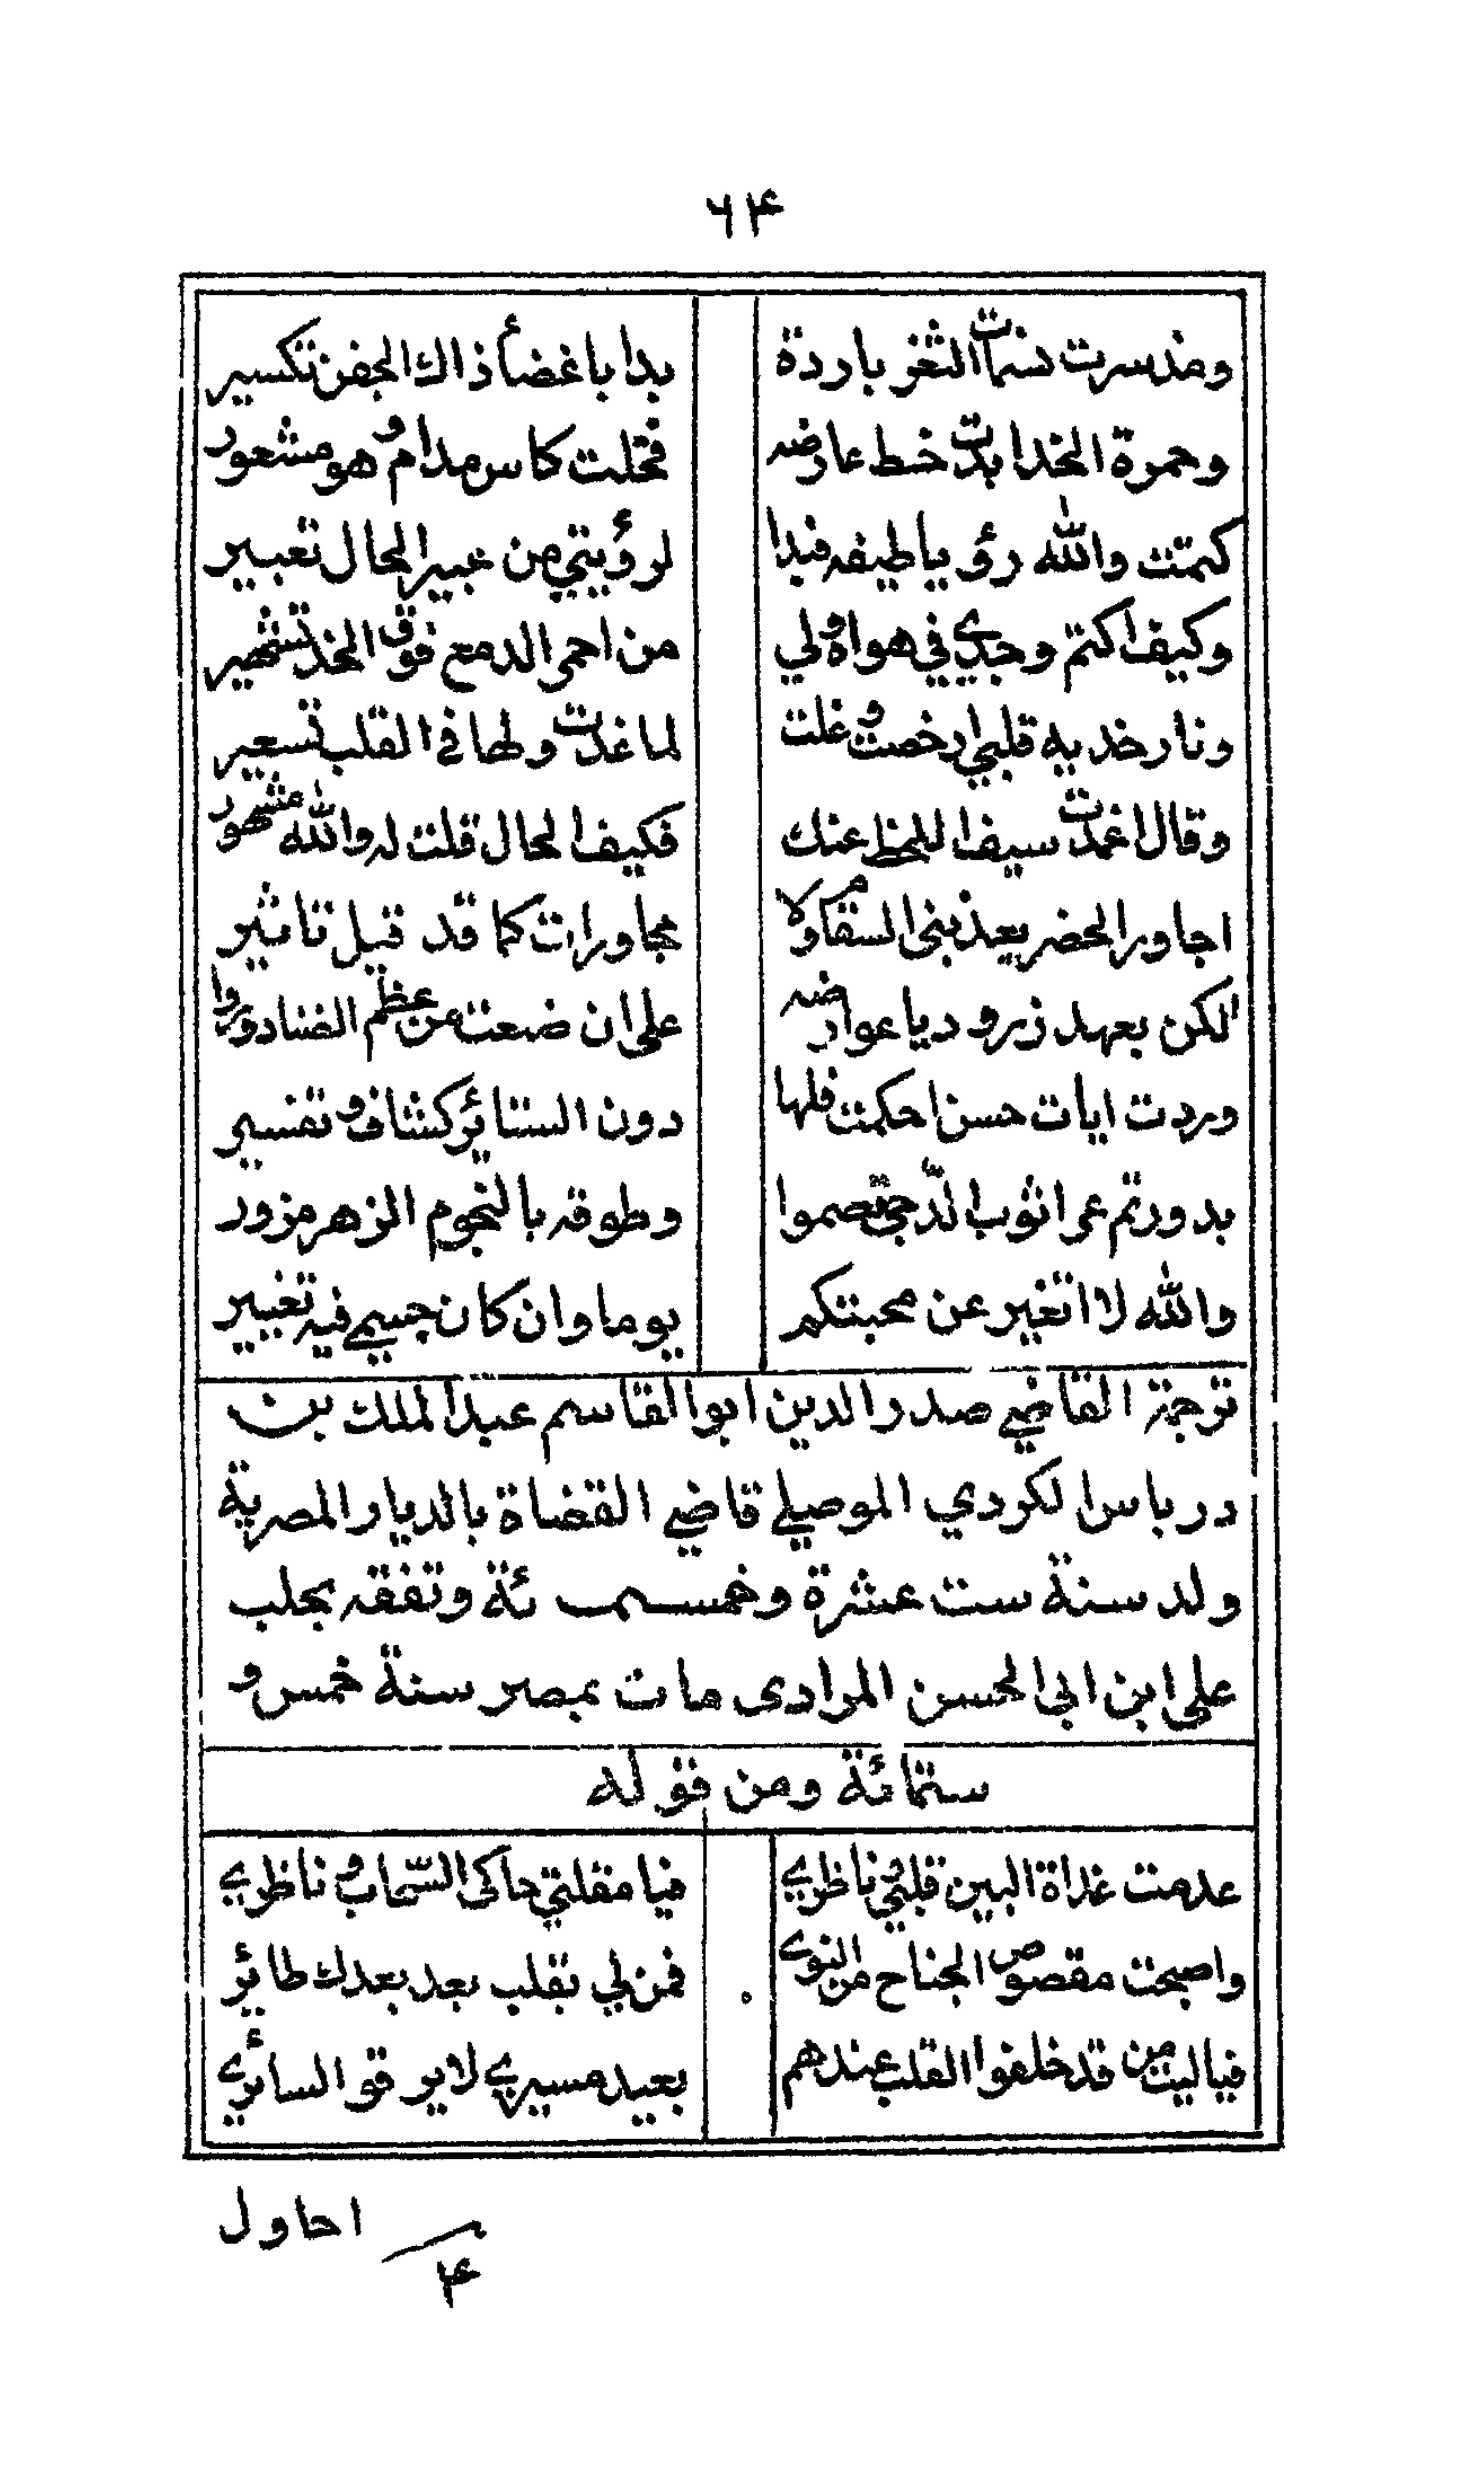 ۶۴
ومذ سرت نسمات الثغر باردة بدا باغضأ ذاك الجفن تكسير
وحمرة الخد ابدت خط عارضه فخلت كاس مدام وهو مشعور
كتمت والله رؤيا طيفه فبدا لرؤيتي من عبير الحال تعبير
وكيف اكتم وجدي في هواه ولي من احمر الدمع فوق الخد تشهير
ونار خديه قلبي ارخصت وغلت لما غدت ولها في القلب تسعير
وقال اغمدت سيفا للحظ عنك فكيف الحال قلت له والله مشهور
اجاور الخضر يعذبنى السقم ولا مجاورات كما قد قيل تاثير
لكن بعهد زرود يا عوارضه على ان ضعت عن عظم الضنا دوروا
وردت ايات حسن احكمت فلها دون الستائر كشاف وتفسير
بدور تم عرا ثوب الدّجى تصموا وطوقه بالنجوم الزهر مزور
والله لا اتغير عن محبتكم يوما وان كان جسمي فيه تغيير
ترجمة القاضي صدر الدين ابو القاسم عبد الملك بن
درباس الكردي الموصلي قاضي القضاة بالديار المصرية
ولد سنة ست عشرة وخمسمـئة وتفقه بحلب
على ابن ابى الحسن المرادى مات بمصر سنة خمس و
ستمائة ومن قوله
عدمت غداة البين قلبي وناظري فيا مقلتي حاكى السّحاب وناظري
واصبحت مقصوص الجناح من النوى فمن لي بقلب بعد بعدك طائر
فيا ليت من قد خلفوا القلب عندهم بعيد مسيري لا يرقو السائري
احاول
۴